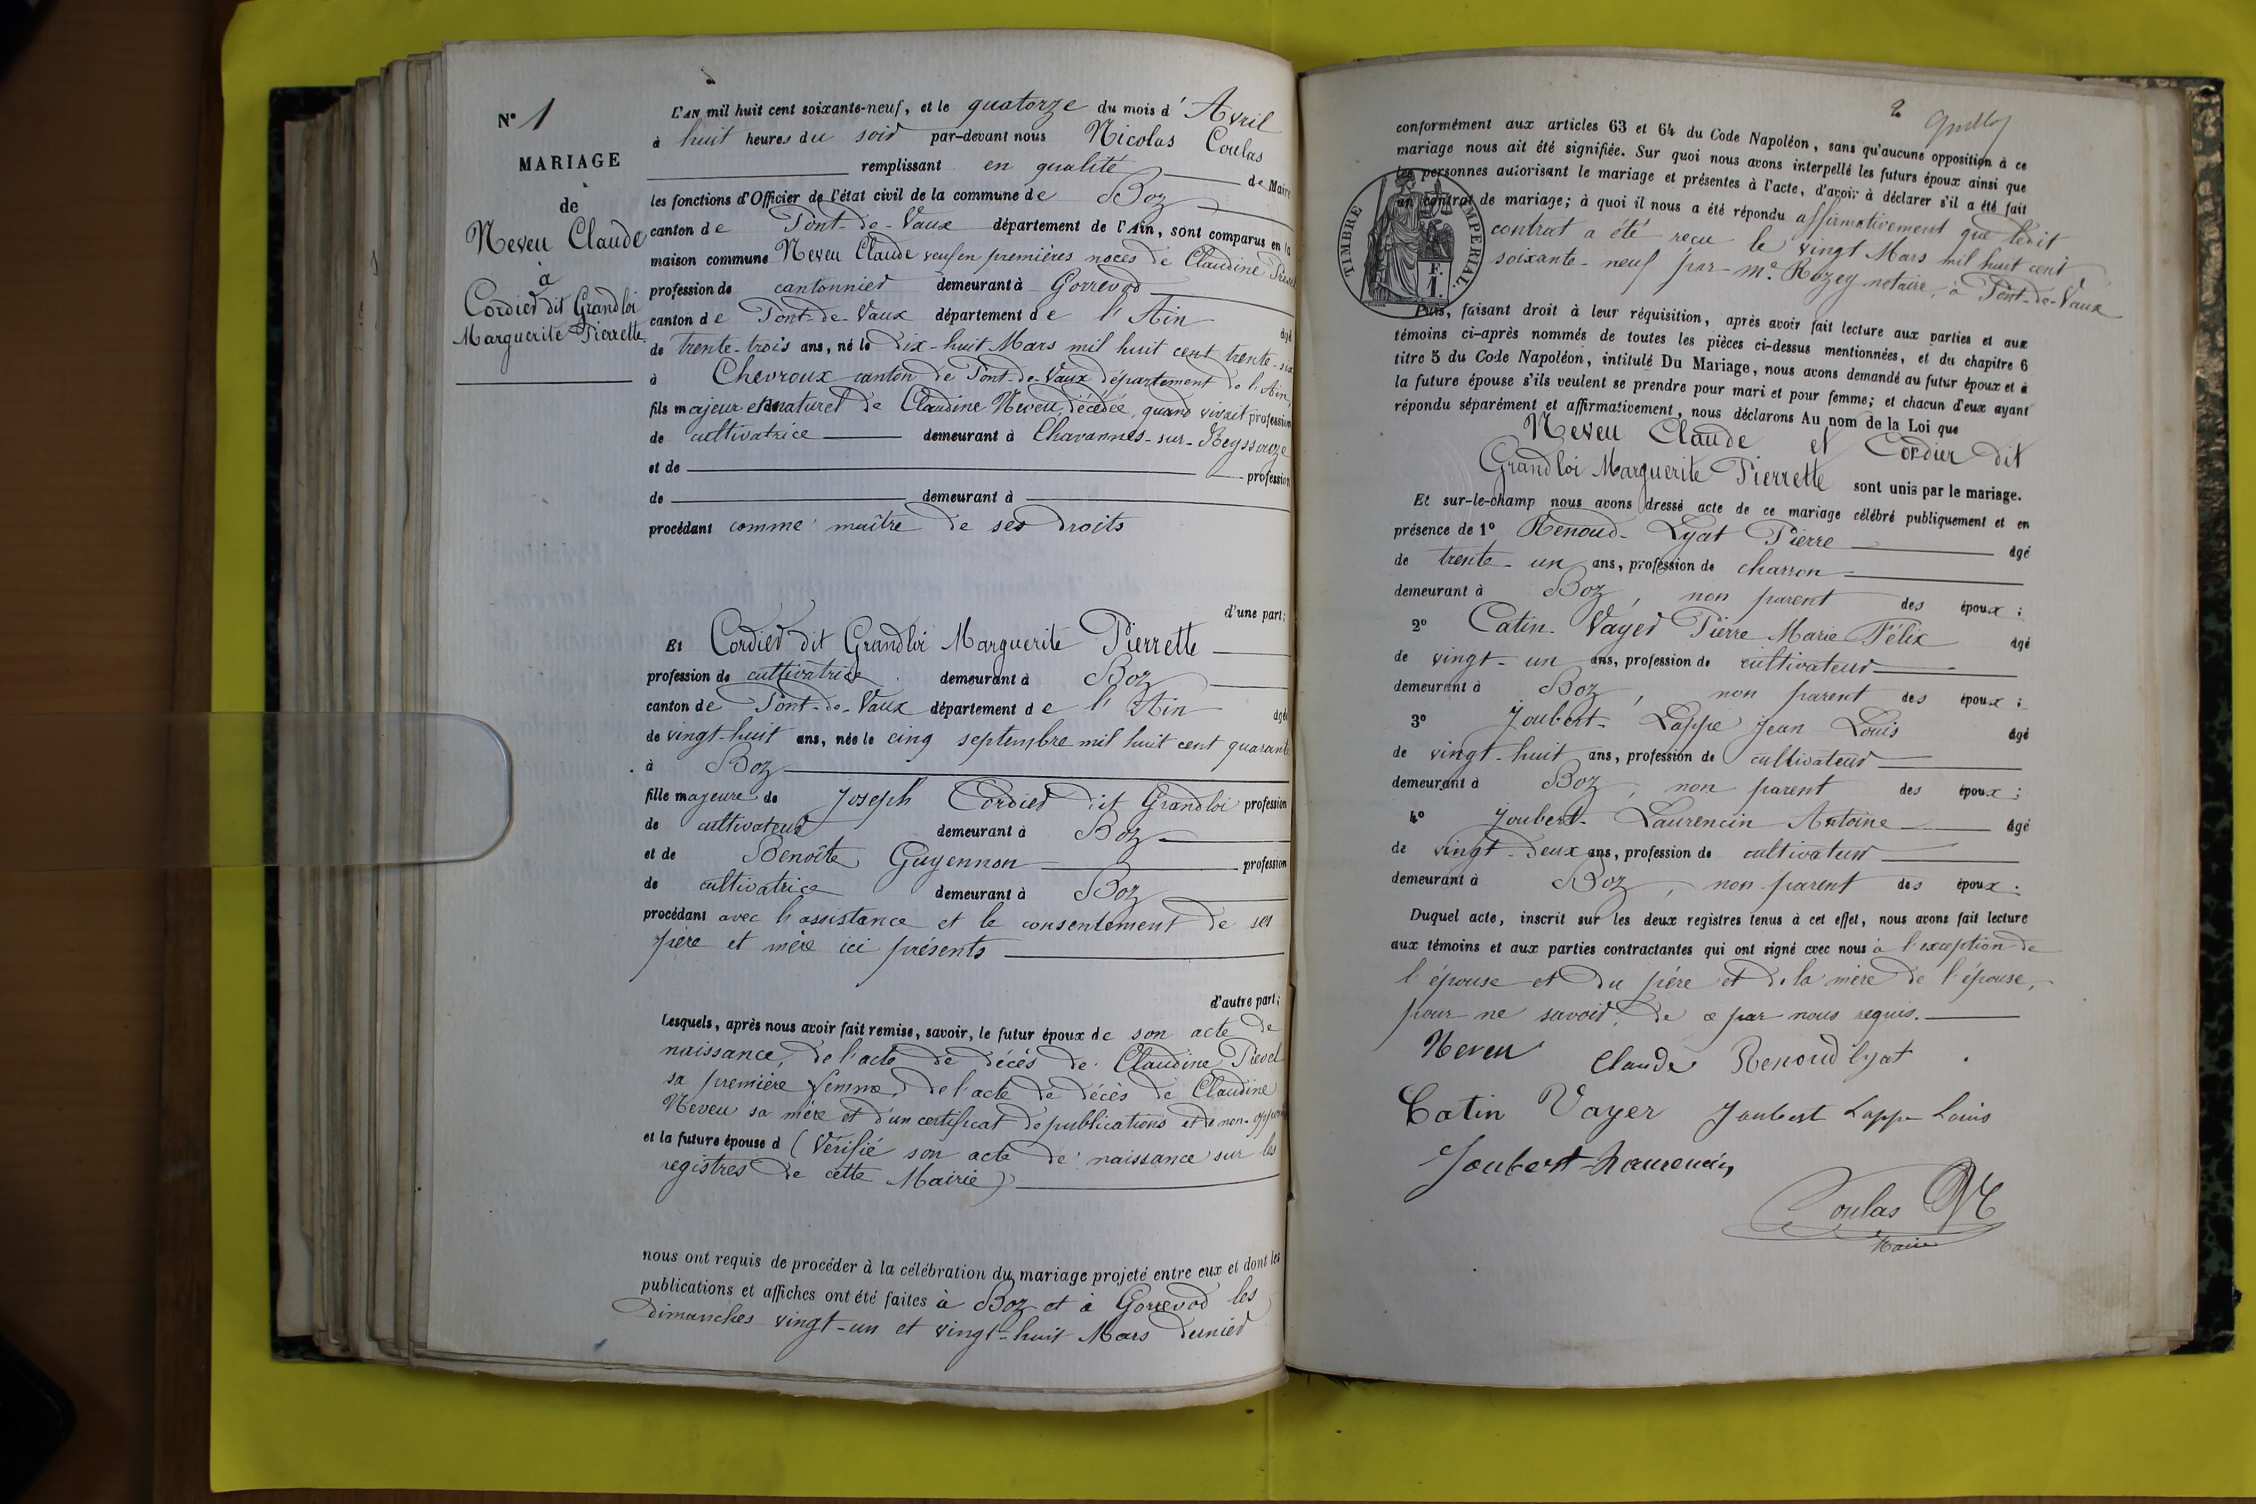 N° 1
MARIAGE
de
Neveu Claude
à
Cordier dit Grandloi
Marguerite Pierrette
L'AN mil huit cent soixante-neuf, et le quatorze du mois d'Avril
à huit heures du soir par-devant nous Nicolas Coulas
remplissant en qualité de Maire
les fonctions d'Officier de l'état civil de la commune de Boz
canton de Pont-de-Vaux département de l'Ain, sont comparus en la
maison commune Neveu Claude veuf en premières noces de Claudine
profession de cantonnier demeurant à Gorrevod
canton de Pont-de-Vaux département de l'Ain âgé
de trente-trois ans, né le dix-huit Mars mil huit cent trente-six
à Chevroux canton de Pont-de-Vaux département de l'Ain,
fils majeur et naturel de Claudine Neveu, décédée, quand vivait profession
de cultivatrice demeurant à Chavannes-sur-Reyssouze
et de profession
de demeurant à
procédant comme maître de ses droits
d'une part;
Et Cordier dit Grandloi Marguerite Pierrette
profession de cultivatrice demeurant à Boz
canton de Pont-de-Vaux département de l'Ain âgée
de vingt-huit ans, née le cinq septembre mil huit cent quarante
à Boz
fille majeure de Joseph Cordier dit Grandloi profession
de cultivateur demeurant à Boz
et de Benoîte Guyennon profession
de cultivatrice demeurant à Boz
procédant avec l'assistance et le consentement de ses
père et mère ici présents
d'autre part;
Lesquels, après nous avoir fait remise, savoir, le futur époux de son acte de
naissance, de l'acte de décès de Claudine
sa première femme, de l'acte de décès de Claudine
Neveu sa mère et d'un certificat de publications et de non-
et la future épouse d (Vérifié son acte de naissance sur les
registres de cette Mairie)
nous ont requis de procéder à la célébration du mariage projeté entre eux et dont les
publications et affiches ont été faites à Boz et à Gorrevod les
dimanches vingt-un et vingt-huit Mars dernier
2
conformément aux articles 63 et 64 du Code Napoléon, sans qu'aucune opposition à ce
mariage nous ait été signifiée. Sur quoi nous avons interpellé les futurs époux ainsi que
les personnes autorisant le mariage et présentes à l'acte, d'avoir à déclarer s'il a été fait
un contrat de mariage; à quoi il nous a été répondu affirmativement que ledit
contrat a été reçu le vingt Mars mil huit cent
soixante-neuf par Me Rozey notaire, à Pont-de-Vaux
TIMBRE IMPERIAL.
F.
1.
Puis, faisant droit à leur réquisition, après avoir fait lecture aux parties et aux
témoins ci-après nommés de toutes les pièces ci-dessus mentionnées, et du chapitre 6
titre 5 du Code Napoléon, intitulé Du Mariage, nous avons demandé au futur époux et à
la future épouse s'ils veulent se prendre pour mari et pour femme; et chacun d'eux ayant
répondu séparément et affirmativement, nous déclarons Au nom de la Loi que
Neveu Claude et Cordier dit
Grandloi Marguerite Pierrette sont unis par le mariage.
Et sur-le-champ nous avons dressé acte de ce mariage célébré publiquement et en
présence de 1° Renoud-Lyat Pierre âgé
de trente-un ans, profession de charron
demeurant à Boz, non parent des époux;
2° Catin-Vayer Pierre Marie Félix âgé
de vingt-un ans, profession de cultivateur
demeurant à Boz, non parent des époux;
3° Joubert-Lappe Jean Louis âgé
de vingt-huit ans, profession de cultivateur
demeurant à Boz, non parent des époux;
4° Joubert-Laurencin Antoine âgé
de vingt-deux ans, profession de cultivateur
demeurant à Boz, non parent des époux.
Duquel acte, inscrit sur les deux registres tenus à cet effet, nous avons fait lecture
aux témoins et aux parties contractantes qui ont signé avec nous à l'exception de
l'épouse et du père et de la mère de l'épouse,
pour ne savoir, de ce par nous requis.
Neveu Claude Renoud lyat
Catin Vayer Joubert Lappe Louis
Joubert-Laurencin
Coulas N
Maire